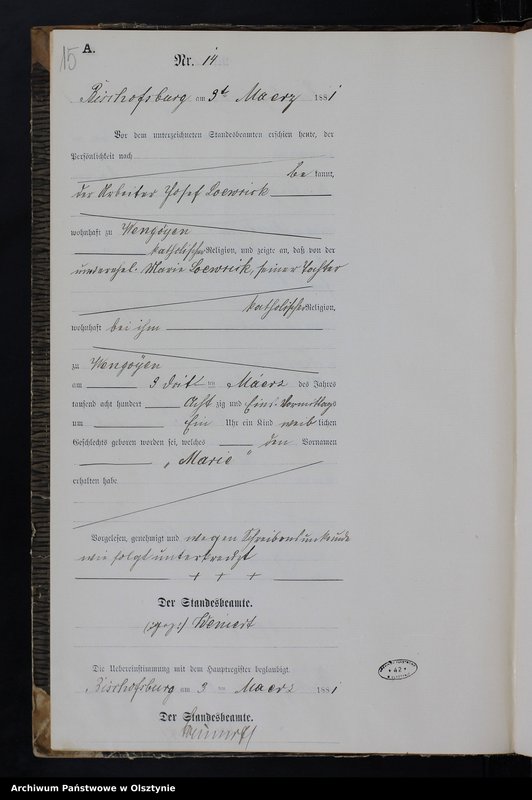 15
A.
Nr. 14
Bischofsburg am 3t Maerz 1881
Vor dem unterzeichneten Standesbeamten erschien heute, der
Persönlichkeit nach
be kannt,
der Arbeiter Josef Loewrick
wohnhaft zu Wengoyen
katholischer Religion, und zeigte an, daß von der
unverehel. Marie Loewrick, seiner Tochter
katholischer Religion,
wohnhaft bei ihm
zu Wengoyen
am 3 drit ten Maerz des Jahres
tausend acht hundert Acht zig und Eins Vormittags
um Ein Uhr ein Kind weib lichen
Geschlechts geboren worden sei, welches den Vornamen
„Marie“
erhalten habe
Vorgelesen, genehmigt und wegen Schreibensunkunde
wie folgt unterkreuzt
+ + +
Der Standesbeamte.
(gez:) Weinert
Die Uebereinstimmung mit dem Hauptregister beglaubigt
Bischofsburg am 3 ten Maerz 1881
Der Standesbeamte.
Weinert
42
Archiwum Państwowe w Olsztynie